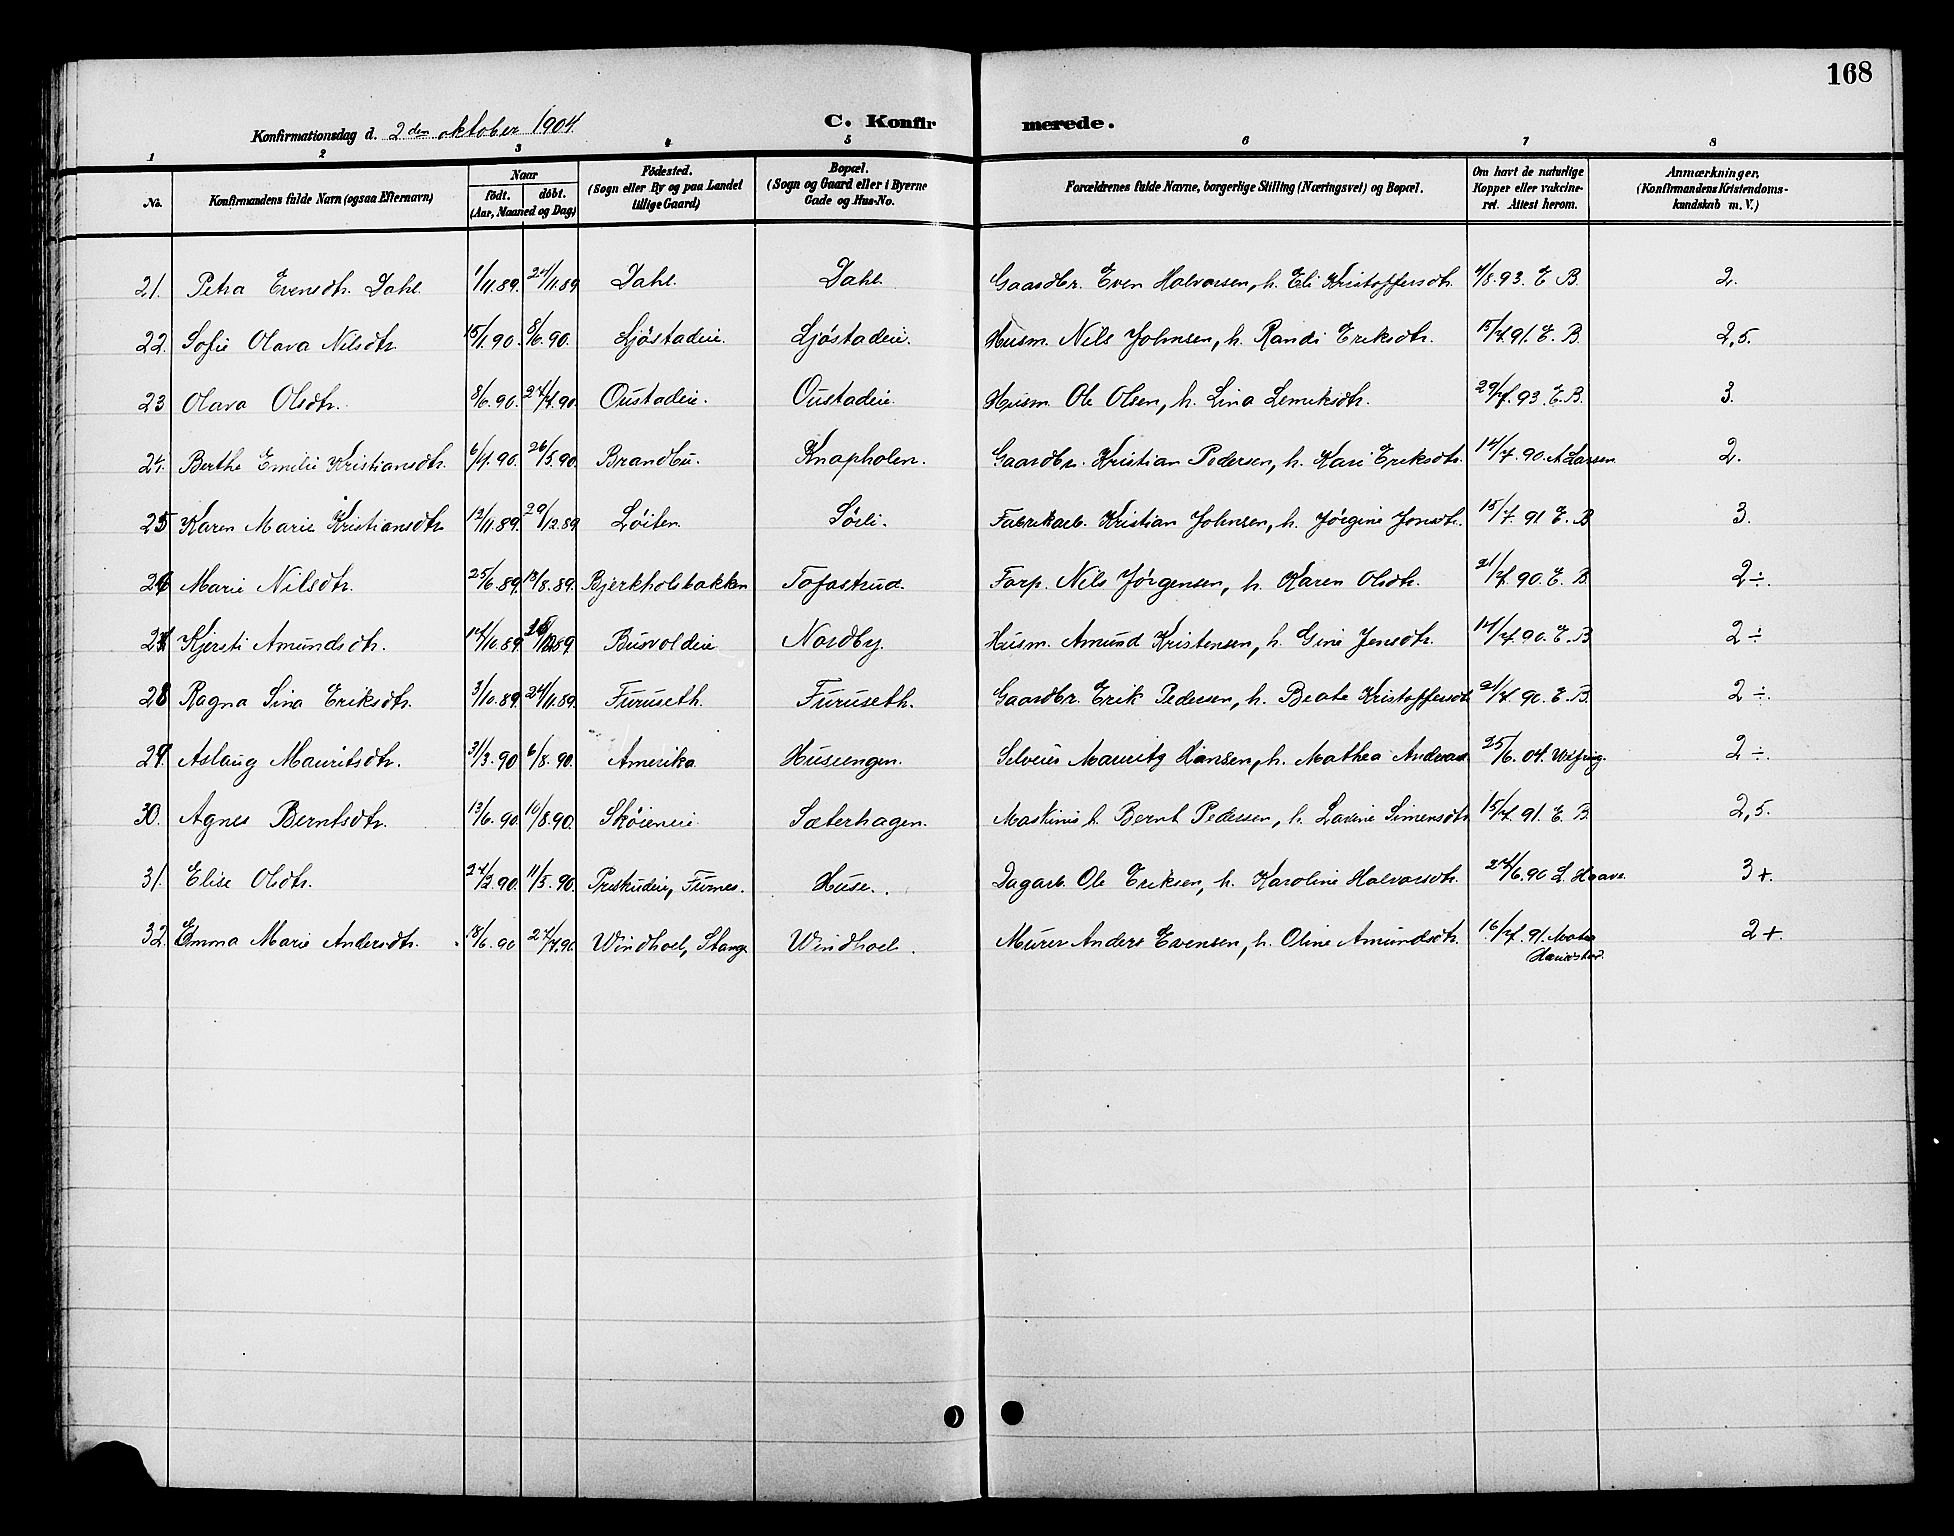 168
Konfirmationsdag d. 2den oktober 1904.
C. Konfirmerede.
1 2 3 4 5 6 7 8
No. Konfirmandens fulde Navn (ogsaa Efternavn) Naar født. døbt. (Aar, Maaned og Dag) Fødested. (Sogn eller By og paa Landet tillige Gaard) Bopæl. (Sogn og Gaard eller i Byerne Gade og Hus-No. Forældrenes fulde Navne, borgerlige Stilling (Næringsvei) og Bopæl. Om havt de naturlige Kopper eller vakcineret. Attest herom. Anmærkninger. (Konfirmandens Kristendomskundskab m. V.)
21. Petra Evensdtr. Dahl 1/11.89. 24/11.89 Dahl. Dahl. Gaardbr. Even Halvorsen, h. Eli Kristoffersdtr. 4/8.93. E B. 2.
22. Sofie Olava Nilsdtr. 15/1.90. 8/6.90. Ljøstadeie. Ljøstadeie. Husm. Nils Johnsen, h. Randi Eriksdtr. 15/7.91. E. B. 2,5.
23 Olava Olsdtr. 8/6.90. 24/7.90. Oustadeie. Oustadeie. Husm. Ole Olsen, h. Lina Lemiksdtr. 29/7.93. E. B. 3.
24. Berthe Emilie Kristiansdtr. 6/4.90. 26/5.90. Brandbu. Knapholen. Gaardbr. Kristian Pedersen, h. Kari Eriksdtr. 14/7.90. A Larsen 2.
25 Karen Marie Kristiansdtr. 12/11.89. 29/12.89 Løiten. Sørli. Fabrikarb. Kristian Johnsen, h. Jørgine Jonsdtr. 15/7.91 E. B 3.
26 Marie Nilsdtr. 25/6.89. 18/8.89. Bjerkholsbakken Tofastrud. Forp. Nils Jørgensen, h. Karen Olsdtr. 21/7.90. E. B. 2÷.
27 Kjersti Amundsdtr. 14/10.89. 26/12.89. Busvoldeie Nordby. Husm. Amund Kristensen, h. Gine Jensdtr. 14/7.90. E. B 2÷
28 Ragna Lina Eriksdtr. 3/10.89. 24/11.89. Furuseth. Furuseth. Gaardbr. Erik Pedersen, h. Beate Kristoffersdt 21/7.90. E. B. 2÷.
29 Aslaug Mauritsdtr. 31/3.90 6/8.90. Amerika Huseengen. Selveier Mauritz Hansen, h. Mathea Andersd 25/6.04. 2÷.
30. Agnes Berntsdtr. 13/6.90 10/8.90. Skøieneie Sæterhagen. Maskinist. Bernt Pedersen, h. Lavine Simensdtr 15/7.91. E. B 2,5.
31. Elise Olsdtr. 24/2.90. 11/5.90. Furnes. Huse. Dagarb. Ole Eriksen, h. Karoline Halvorsdtr. 24/6.90 L. Haave 3+.
32. Emma Marie Andersdtr. 18/6.90 27/7.90 Windhoel, Stange Windhoel. Murer Anders Evensen, h. Oline Amundsdtr. 16/7.91. 2+.